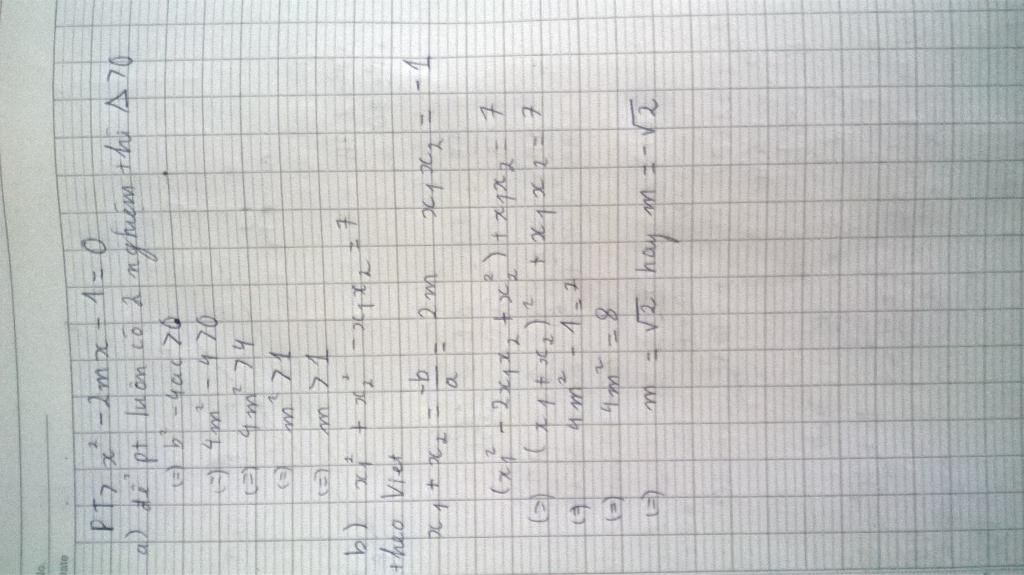 No.
Date
PT> x² - 2mx - 1 = 0
a) để pt luôn có 2 nghiệm thì Δ>0
(=) b² - 4ac >0
(=) 4m² - 4 >0
(=) 4m² > 4
(=) m² > 1
(=) m > 1
b) x₁² + x₂² - x₁x₂ = 7
theo Viet
x₁ + x₂ = -b/a = 2m x₁x₂ = -1
(x₁² - 2x₁x₂ + x₂²) + x₁x₂ = 7
(=) (x₁ + x₂)² + x₁x₂ = 7
(=) 4m² - 1 = 7
(=) 4m² = 8
(=) m = √2 hay m = -√2